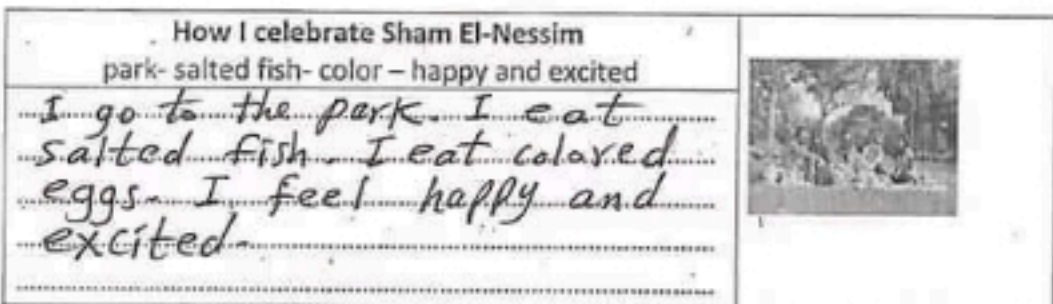 How I celebrate Sham El-Nessim
park- salted fish- color – happy and excited
I go to the park. I eat
salted fish. I eat colored
eggs. I feel happy and
excited.